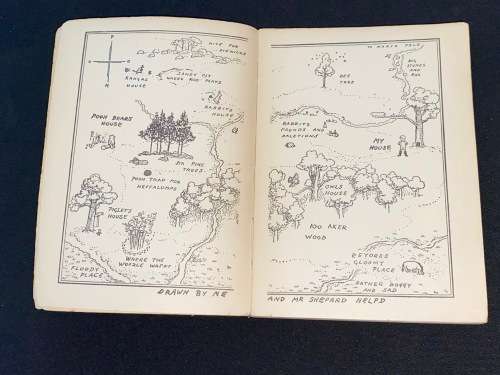 NICE FOR
PICNICKS
SANDY PIT
WHERE ROO PLAYS
KANGAS
HOUSE
RABBITS
HOUSE
POOH BEARS
HOUSE
SIX PINE
TREES
POOH TRAP FOR
HEFFALUMPS
PIGLETS
HOUSE
WHERE THE
WOOZLE WASNT
FLOODY
PLACE
DRAWN BY ME
TO NORTH POLE
BIG
STONES
AND
ROX
BEE
TREE
RABBITS
FRENDS AND
RALETIONS
MY
HOUSE
OWLS
HOUSE
100 AKER
WOOD
EEYORES
GLOOMY
PLACE
RATHER BOGGY
AND SAD
AND MR SHEPARD HELPD